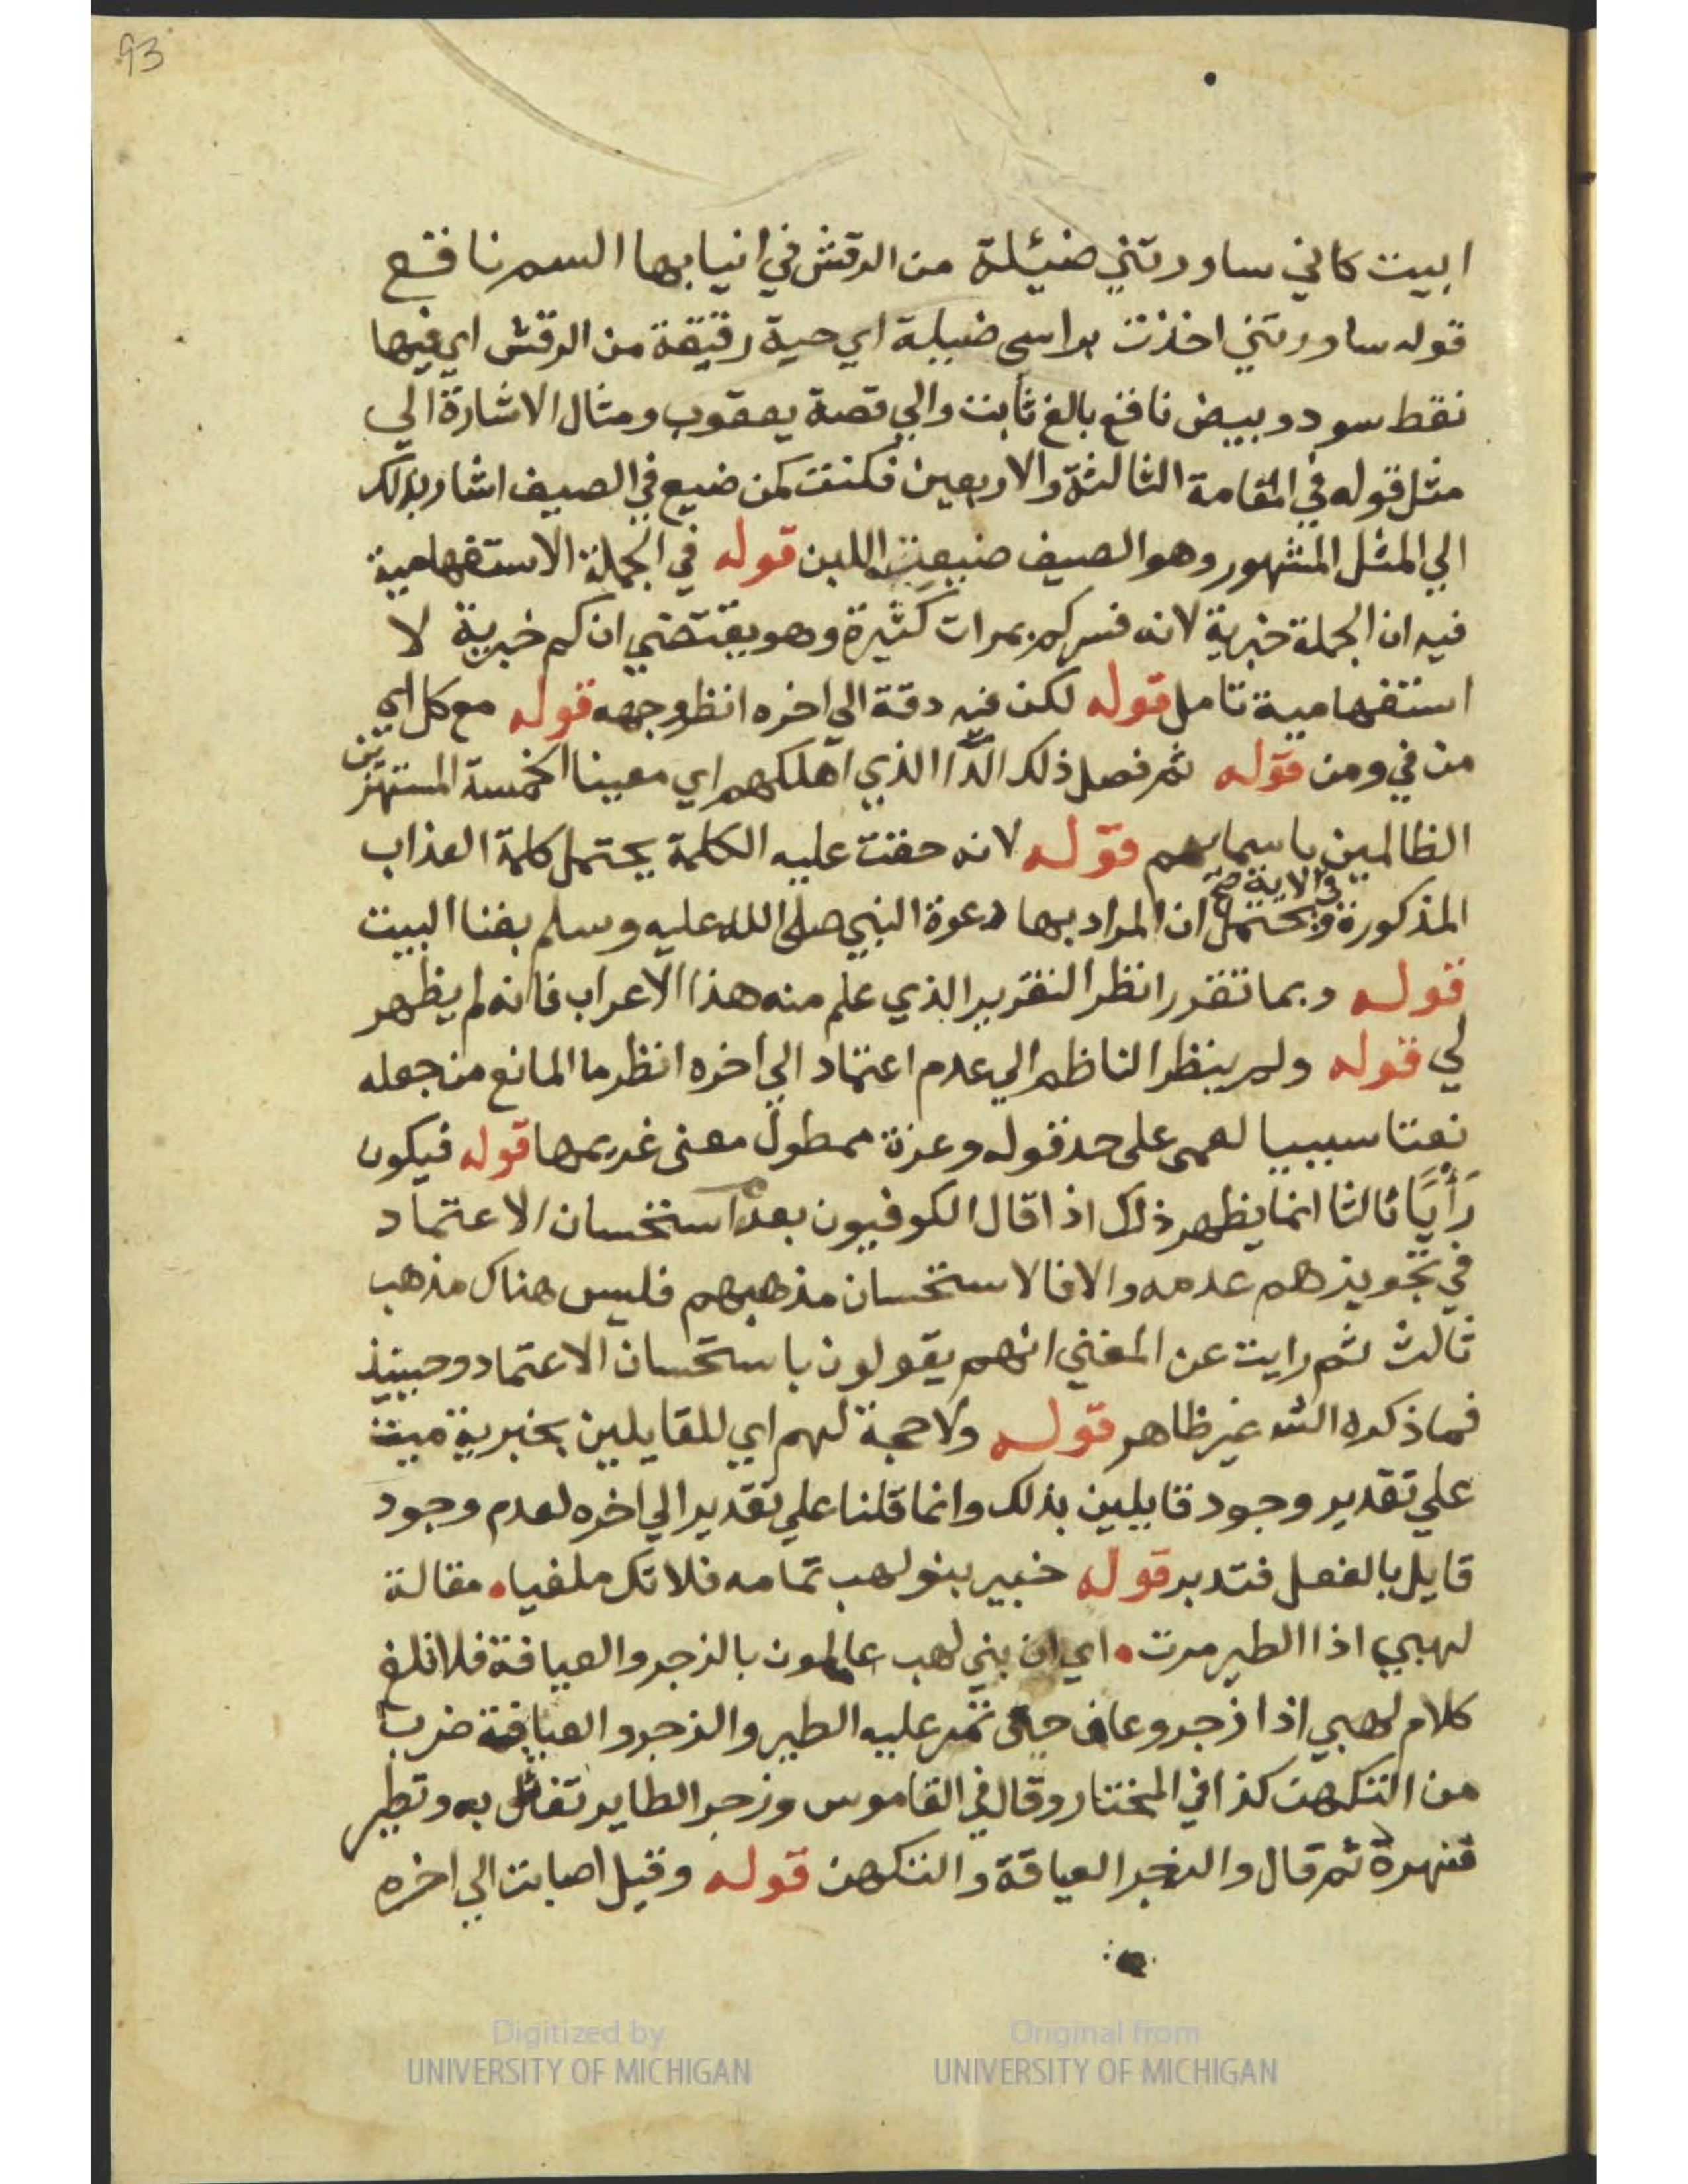 93
ابيت كاني ساورتني ضئيلة من الرقش في انيابها السم نا قع
قوله ساورتني اخذت براسي ضيلة اي حية رقيقة من الرقش اي فيها
نقط سود وبيض ناقع بالغ ثابت والي قصة يعقوب ومثال الاشارة الي
مثل قوله في المقامة الثالثة والاربعين فكنت كمن ضيع في الصيف اشار بذلك
الي المثل المشهور وهو الصيف ضيعت اللبن قوله في الجملة الاستفهامية
فيه ان الجملة خبرية لانه فسر كم بمرات كثيرة وهو يقتضي ان كم خبرية لا
استفهامية تامل قوله لكن فيه دقة الي اخره انظر وجهه قوله مع كل اي
من في ومن قوله ثم فصل ذلك الدا الذي اهلكهم اي معينا الخمسة المستهزين
الظالمين باسمايهم قوله لانه حقت عليه الكلمة يحتمل كلمة العذاب
المذكورة في الاية صح ويحتمل ان المراد بها دعوة النبي صلى الله عليه وسلم بفنا البيت
قوله وبما تقرر انظر التقرير الذي علم منه هذا الاعراب فانه لم يظهر
لي قوله ولم ينظر الناظم الي عدم اعتماد الي اخره انظر ما المانع من جعله
نعتا سببيا لعمى على حد قوله وعزة ممطول معنى غريمها قوله فيكون
رَأيًا ثالثا انما يظهر ذلك اذا قال الكوفيون بعد استحسان الاعتماد
في تجويزهم عدمه والا فالاستحسان مذهبهم فليس هناك مذهب
ثالث ثم رايت عن المغني انهم يقولون باستحسان الاعتماد وحينيذ
فما ذكره الشه غير ظاهر قوله ولا حجة لهم اي للقايلين بخبرية ميت
علي تقدير وجود قايلين بذلك وانما قلنا علي تقدير الي اخره لعدم وجود
قايل بالفعل فتدبر قوله خبير بنو لهب تمامه فلا تك ملغيا ۰ مقالة
لهبي اذا الطير مرت ۰ اي ان بني لهب عالمون بالزجر والعيافة فلا تلغ
كلام لهبي اذا زجر وعاف حين تمر عليه الطير والزجر والعيافة ضرب
من التكهن كذا في المختار وقال في القاموس وزجر الطاير تفال به وتطير
فنهره ثم قال والزجر العيافة والتكهن قوله وقيل اصابت الي اخره
Digitized by
UNIVERSITY OF MICHIGAN
Original from
UNIVERSITY OF MICHIGAN